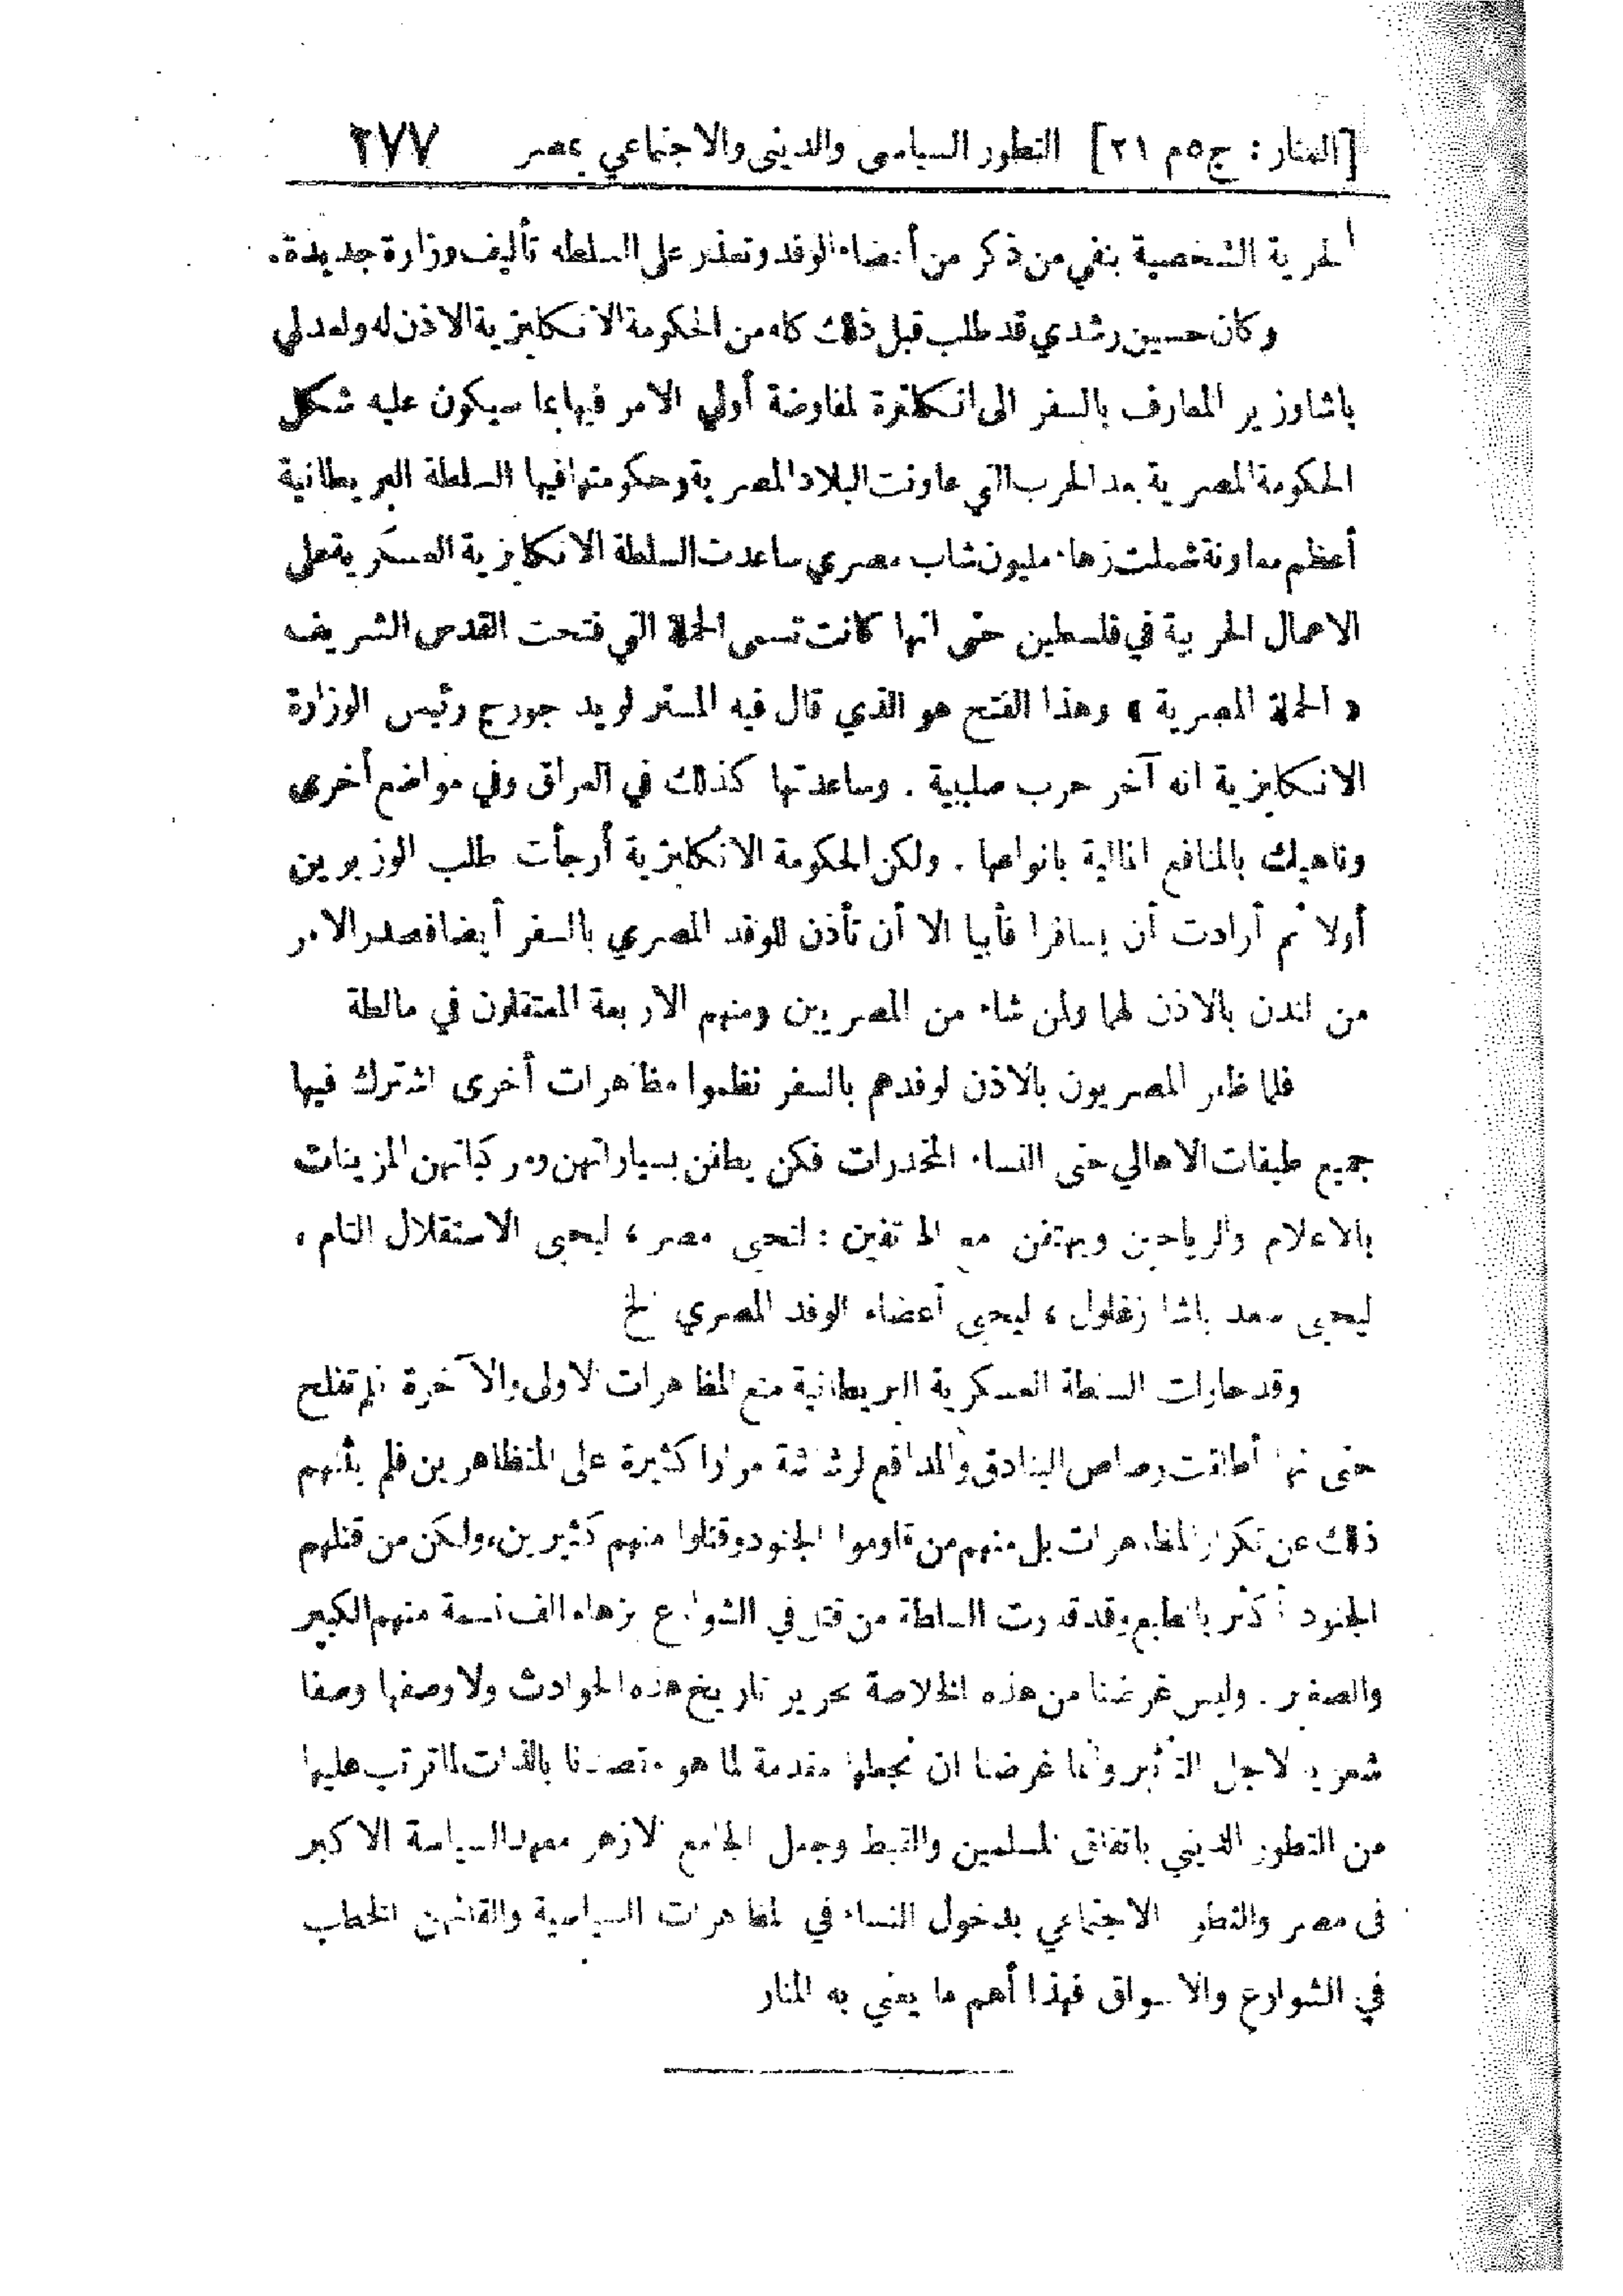 [المنار : ج ٥ م ٢١] التطور السياسى والدينى والاجتماعي بمصر ٢٧٧
الحرية الشخصية بنفي من ذكر من أعضاء الوفد وتعذر على السلطه تأليف وزارة جديدة.
وكان حسين رشدي قد طلب قبل ذلك كله من الحكومة الانكليزية الاذن له ولعدلي
باشا وزير المعارف بالسفر الى انكلترة لمفاوضة أولي الامر فيها بما سيكون عليه شكل
الحكومة المصرية بعد الحرب التي عاونت البلاد المصرية وحكومتها فيها السلطة البريطانية
أعظم معاونة شملت زهاء مليون شاب مصري ساعدت السلطة الانكليزية العسكرية على
الاعمال الحربية في فلسطين حتى انها كانت تسمى الحملة التي فتحت القدس الشريف
« الحملة المصرية » وهذا الفتح هو الذي قال فيه المستر لويد جورج رئيس الوزارة
الانكليزية انه آخر حرب صليبية . وساعدتها كذلك في العراق وفي مواضع أخرى
وناهيك بالمنافع المالية بانواعها . ولكن الحكومة الانكليزية أرجأت طلب الوزيرين
أولا ثم أرادت أن يسافرا فأبيا الا أن تأذن للوفد المصري بالسفر أيضا فصدر الامر
من لندن بالاذن لهما ولمن شاء من المصريين ومنهم الاربعة المعتقلون في مالطة
فلما ظفر المصريون بالاذن لوفدهم بالسفر نظموا مظاهرات أخرى اشترك فيها
جميع طبقات الاهالي حتى النساء المخدرات فكن يطفن بسياراتهن ومركباتهن المزينات
بالاعلام والرياحين ويهتفن مع الهاتفين : لتحي مصر ، ليحيى الاستقلال التام ،
ليحيى سعد باشا زغلول ، ليحيى أعضاء الوفد المصري الخ
وقد حاولت السلطة العسكرية البريطانية منع المظاهرات الاولى والآخرة فلم تفلح
حتى انها أطلقت رصاص البنادق والمدافع الرشاشة مرارا كثيرة على المتظاهرين فلم يثنهم
ذلك عن تكرار المظاهرات بل منهم من قاوموا الجنود وقتلوا منهم كثيرين، ولكن من قتلهم
الجنود أكثر بالطبع وقد قدرت السلطة من قتل في الشوارع بزهاء الف نسمة منهم الكبير
والصغير . وليس غرضنا من هذه الخلاصة تحرير تاريخ هذه الحوادث ولا وصفها وصفا
شعريا لاجل التأثير وانما غرضنا ان نجعلها مقدمة لما هو مقصدنا بالذات لما ترتب عليها
من التطور الديني باتفاق المسلمين والقبط وجعل الجامع الازهر معهد السياسة الاكبر
فى مصر والتطور الاجتماعي بدخول النساء في المظاهرات السياسية والقائهن الخطب
في الشوارع والاسواق فهذا أهم ما يعني به المنار